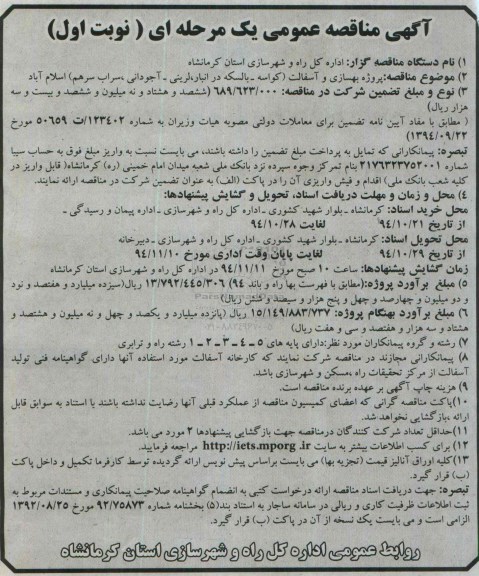 آگهی مناقصه عمومی یک مرحله ای ( نوبت اول)
۱) نام دستگاه مناقصه گزار: اداره کل راه و شهرسازی استان کرمانشاه
۲) موضوع مناقصه:پروژه بهسازی و آسفالت (کواسه ـ بالسکه در انبار،لرینی ـ آجودانی ،سراب سرهم) اسلام آباد
۳) نوع و مبلغ تضمین شرکت در مناقصه: ۶۸۹/۶۲۳/۰۰۰ (ششصد و هشتاد و نه میلیون و ششصد و بیست و سه
هزار ریال)
( مطابق با مفاد آیین نامه تضمین برای معاملات دولتی مصوبه هیات وزیران به شماره ۱۲۳۴۰۲/ت ۵۰۶۵۹ مورخ
۱۳۹۴/۰۹/۲۲)
تبصره: پیمانکارانی که تمایل به پرداخت مبلغ تضمین را داشته باشند، می بایست نسبت به واریز مبلغ فوق به حساب سیبا
شماره ۲۱۷۶۳۲۳۷۵۲۰۰۱ بنام تمرکز وجوه سپرده نزد بانک ملی شعبه میدان امام خمینی (ره) کرمانشاه( قابل واریز در
کلیه شعب بانک ملی) اقدام و فیش واریزی آن را در پاکت (الف) به عنوان تضمین شرکت در مناقصه ارائه نمایند.
۴) محل و زمان و مهلت دریافت اسناد، تحویل و گشایش پیشنهادها:
محل خرید اسناد: کرمانشاه ـ بلوار شهید کشوری ـ اداره کل راه و شهرسازی ـ اداره پیمان و رسیدگی ـ
از تاریخ ۹۴/۱۰/۲۱ لغایت ۹۴/۱۰/۲۸
محل تحویل اسناد: کرمانشاه ـ بلوار شهید کشوری ـ اداره کل راه و شهرسازی ـ دبیرخانه
از تاریخ ۹۴/۱۰/۲۹ لغایت پایان وقت اداری مورخ ۹۴/۱۱/۱۰
زمان گشایش پیشنهادها: ساعت ۱۰ صبح مورخ ۹۴/۱۱/۱۱ در اداره کل راه و شهرسازی استان کرمانشاه
۵) مبلغ برآورد پروژه:(مطابق با فهرست بها راه و باند ۹۴) ۱۳/۷۹۲/۴۴۵/۳۰۶ ریال(سیزده میلیارد و هفتصد و نود
و دو میلیون و چهارصد و چهل و پنج هزار و سیصد و شش ریال)
۶) مبلغ برآورد بهنگام پروژه: ۱۵/۱۴۹/۸۸۳/۷۳۷ ریال (پانزده میلیارد و یکصد و چهل و نه میلیون و هشتصد و
هشتاد و سه هزار و هفتصد و سی و هفت ریال)
۷) رشته و گروه پیمانکاران مورد نظر:دارای پایه های ۵ ـ ۴ ـ ۳ ـ ۲ ـ ۱ رشته راه و ترابری
۸) پیمانکارانی مجازند در مناقصه شرکت نمایند که کارخانه آسفالت مورد استفاده آنها دارای گواهینامه فنی تولید
آسفالت از مرکز تحقیقات راه ،مسکن و شهرسازی باشد.
۹) هزینه چاپ آگهی بر عهده برنده مناقصه است.
۱۰)پاکت مناقصه گرانی که اعضای کمیسیون مناقصه از عملکرد قبلی آنها رضایت نداشته باشند با استناد به سوابق قابل
ارائه ،بازگشایی نخواهد شد.
۱۱)حداقل تعداد شرکت کنندگان درمناقصه جهت بازگشایی پیشنهادها ۲ مورد می باشد.
۱۲) برای کسب اطلاعات بیشتر به سایت http://iets.mporg .ir مراجعه فرمایید.
۱۳)کلیه اوراق آنالیز قیمت (تجزیه بها) می بایست براساس پیش نویس ارائه گردیده توسط کارفرما تکمیل و داخل پاکت
(ب) قرار گیرد.
تبصره: جهت دریافت اسناد مناقصه ارائه درخواست کتبی به انضمام گواهینامه صلاحیت پیمانکاری و مستندات مربوط به
ثبت اطلاعات ظرفیت کاری و ریالی در سامانه ساجار به استناد بند(۵) بخشنامه شماره ۹۲/۷۵۸۷۳ مورخ ۱۳۹۲/۰۸/۲۵
الزامی است و می بایست یک نسخه از آن در پاکت (ب) قرار گیرد.
روابط عمومی اداره کل راه و شهرسازی استان کرمانشاه